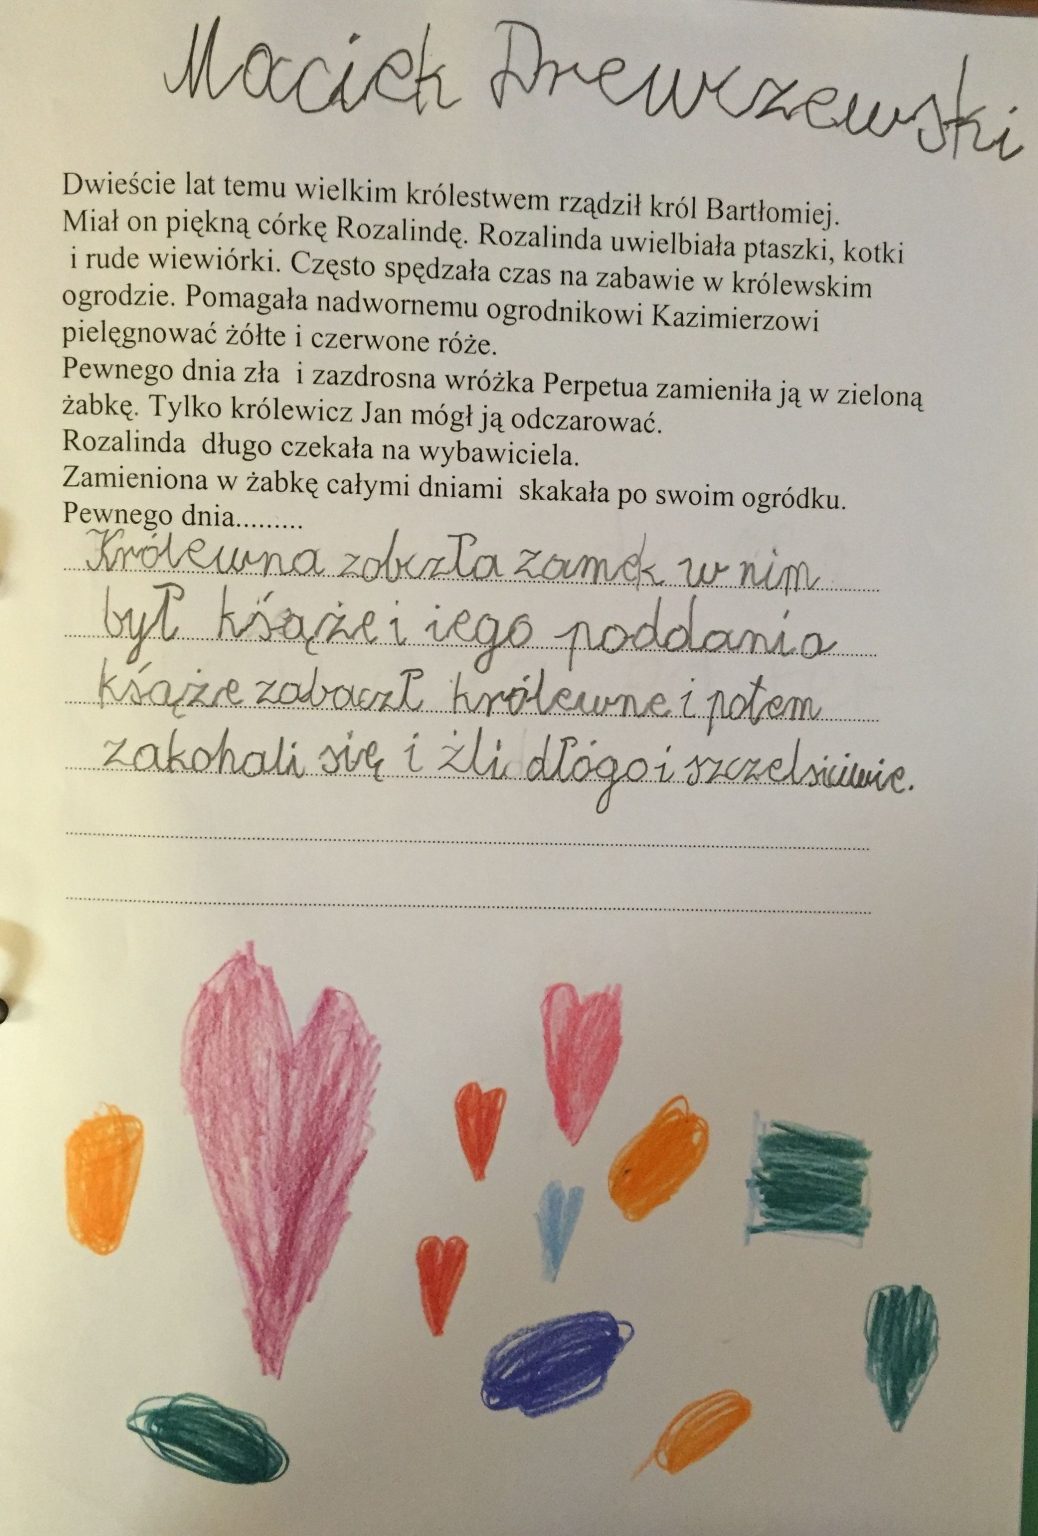 Maciek Drewczewski
Dwieście lat temu wielkim królestwem rządził król Bartłomiej.
Miał on piękną córkę Rozalindę. Rozalinda uwielbiała ptaszki, kotki
i rude wiewiórki. Często spędzała czas na zabawie w królewskim
ogrodzie. Pomagała nadwornemu ogrodnikowi Kazimierzowi
pielęgnować żółte i czerwone róże.
Pewnego dnia zła i zazdrosna wróżka Perpetua zamieniła ją w zieloną
żabkę. Tylko królewicz Jan mógł ją odczarować.
Rozalinda długo czekała na wybawiciela.
Zamieniona w żabkę całymi dniami skakała po swoim ogródku.
Pewnego dnia.........
Królewna zobczła zamek w nim
był ksiąźe i iego poddania
ksiąźe zabaczł królewne i potem
zakohali się i żli dłógo i